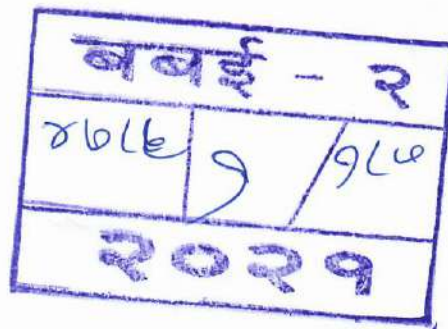 बबई - २
४७८६ १ / १८७
२०२१